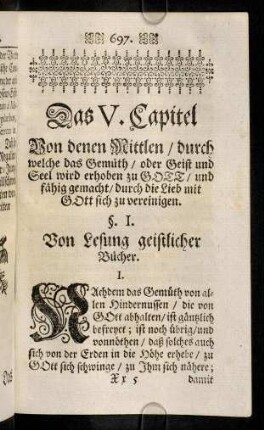 697.
Das V. Capitel
Von denen Mittlen / durch
welche das Gemüth / oder Geist und
Seel wird erhoben zu GOTT / und
fähig gemacht / durch die Lieb mit
GOtt sich zu vereinigen.
§. I.
Von Lesung geistlicher
Bücher.
I.
NAchdem das Gemüth von al-
len Hindernussen / die von
GOtt abhalten / ist gäntzlich
befreyet; ist noch übrig / und
vonnöthen / daß solches auch
sich von der Erden in die Höhe erhebe / zu
GOtt sich schwinge / zu Jhm sich nähere;
Xx 5 damit